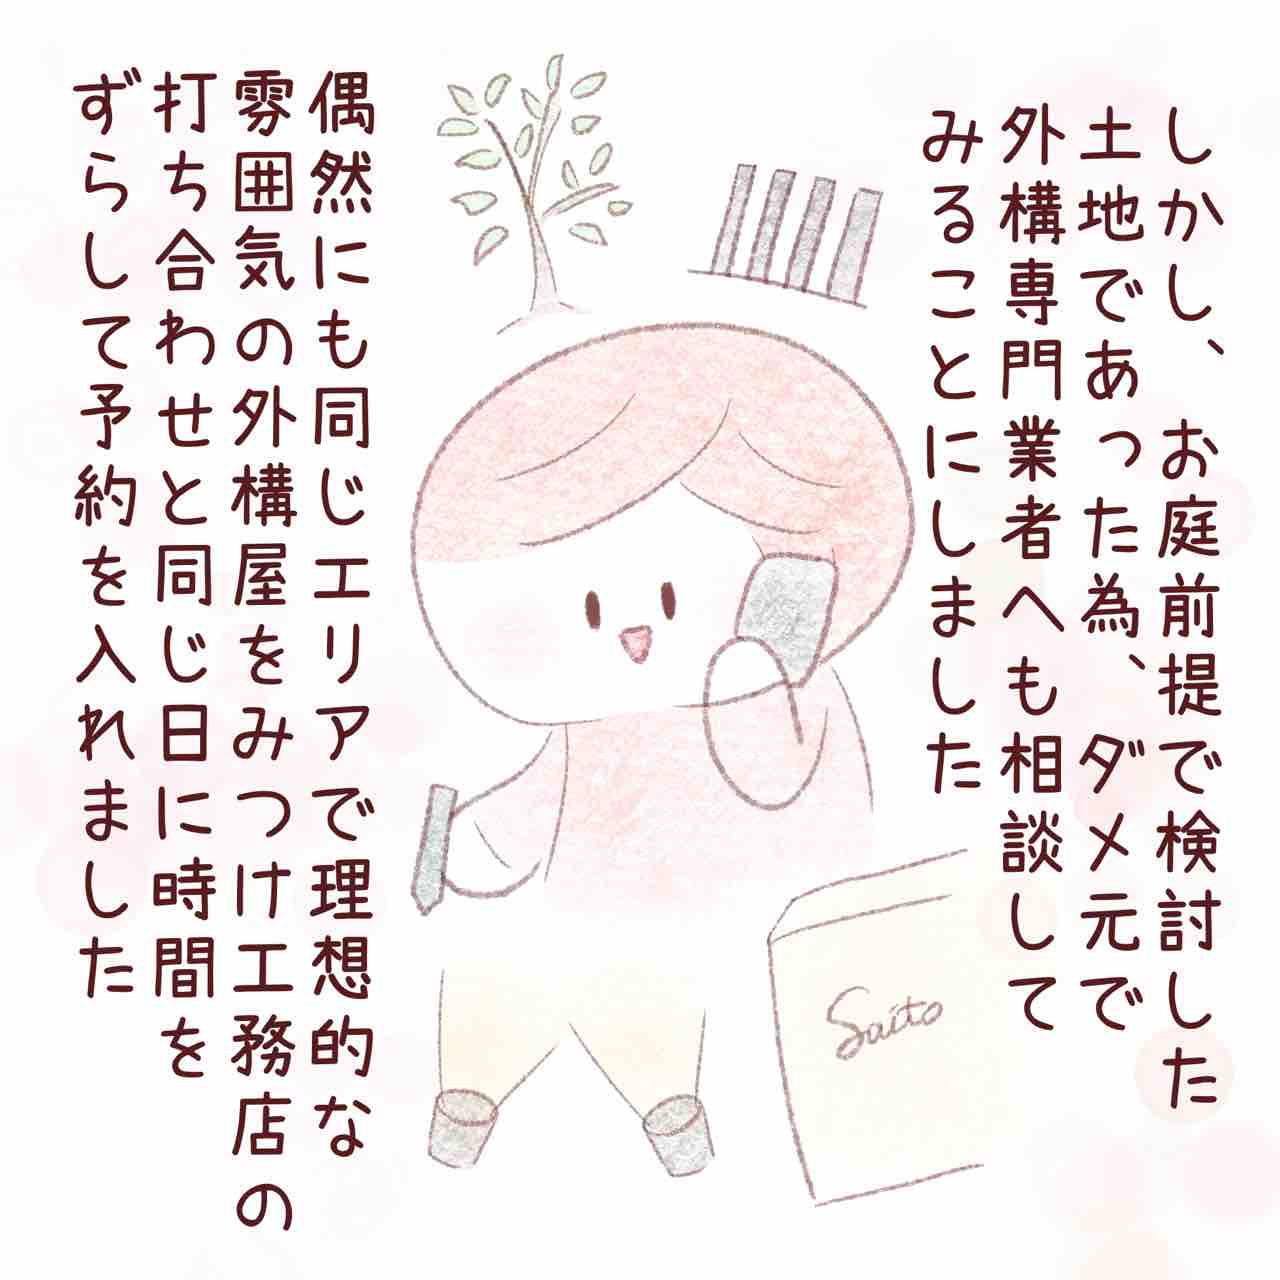 しかし、お庭前提で検討した
土地であった為、ダメ元で
外構専門業者へも相談して
みることにしました
偶然にも同じエリアで理想的な
雰囲気の外構屋をみつけ工務店の
打ち合わせと同じ日に時間を
ずらして予約を入れました
Saito